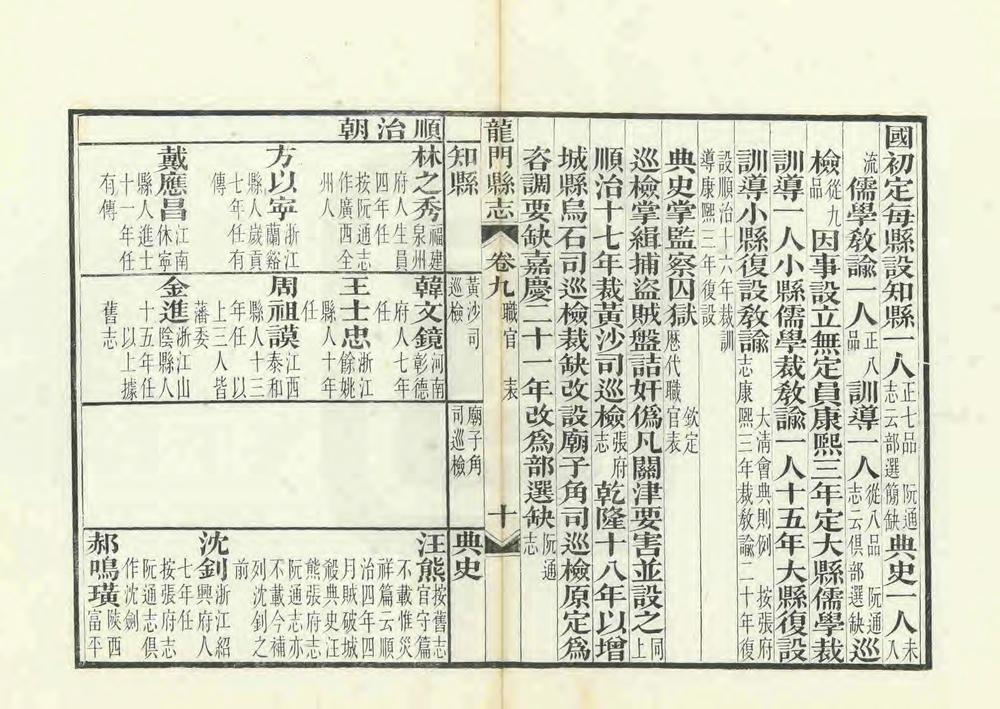 國初定每縣設知縣一人正七品阮通志云部選簡缺典史一人未入
流儒學教諭一人正八品訓導一人從八品阮通志云俱部選缺巡
檢從九品因事設立無定員康熙三年定大縣儒學裁
訓導一人小縣儒學裁教諭一人十五年大縣復設
訓導小縣復設教諭大清會典則例按張府志康熙三年裁教諭二十年復
設順治十六年裁訓導康熙三年復設
典史掌監察囚獄欽定歷代職官表
巡檢掌緝捕盜賊盤詰奸僞凡關津要害並設之同上
順治十七年裁黃沙司巡檢張府志乾隆十八年以增
城縣烏石司巡檢裁缺改設廟子角司巡檢原定爲
咨調要缺嘉慶二十一年改爲部選缺阮通志
龍門縣志 卷九 職官表 十
知縣
黃沙司巡檢
廟子角司巡檢
典史
順治朝
林之秀福建泉州府人生員四年任按阮通志作廣西全州人
方以寧浙江蘭谿縣人歲貢七年任有傳
戴應昌江南休寧縣人進士十一年任有傳
韓文鏡河南彰德府人七年任
王士忠浙江餘姚縣人十年任
周祖謨江西泰和縣人十三年任以上三人皆藩委
金進浙江山陰縣人十五年任以上據舊志
汪熊按舊志官守篇不載惟災祥篇云順治四年四月賊破城殺典史汪熊張府志阮通志亦不載今補列沈釗之前
沈釗浙江紹興府人七年任按張府志阮通志俱作沈劍
郝鳴璜陝西富平